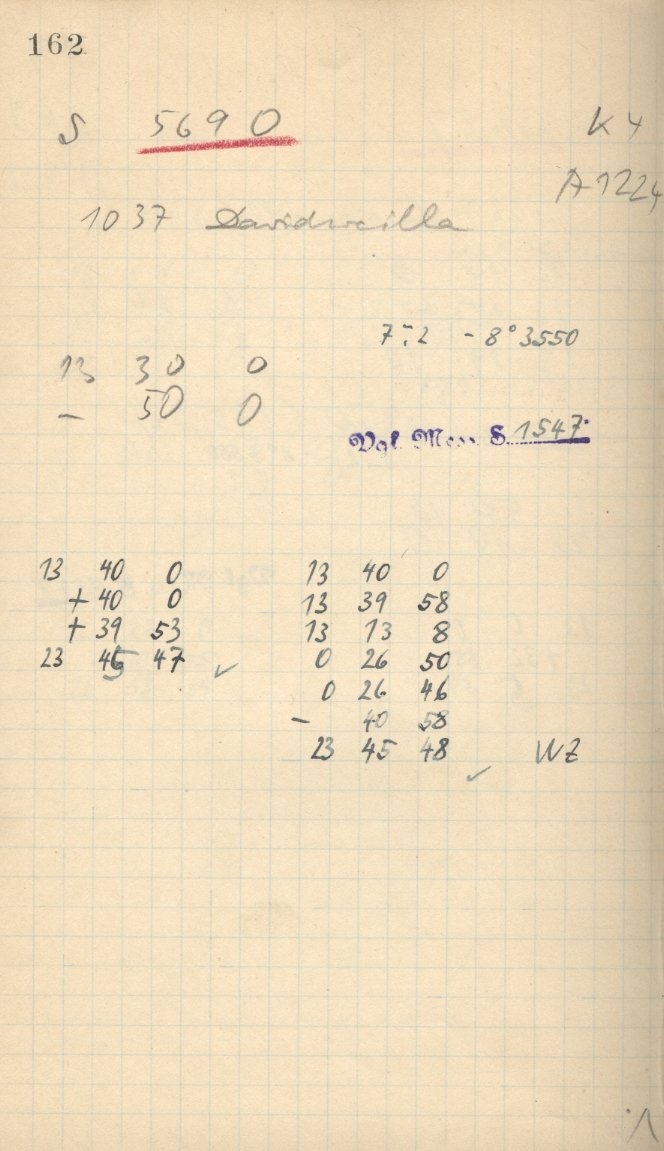 162
S 5690 K 4
A 1224
1037 Davidweilla
7 2 - 8° 3550
13 30 0
- 50 0
Vgl. Mess. S. 1547
13 40 0 13 40 0
+ 40 0 13 39 58
+ 39 53 13 13 8
23 45 47 ✓ 0 26 50
0 26 46
- 40 58
23 45 48 ✓ WZ